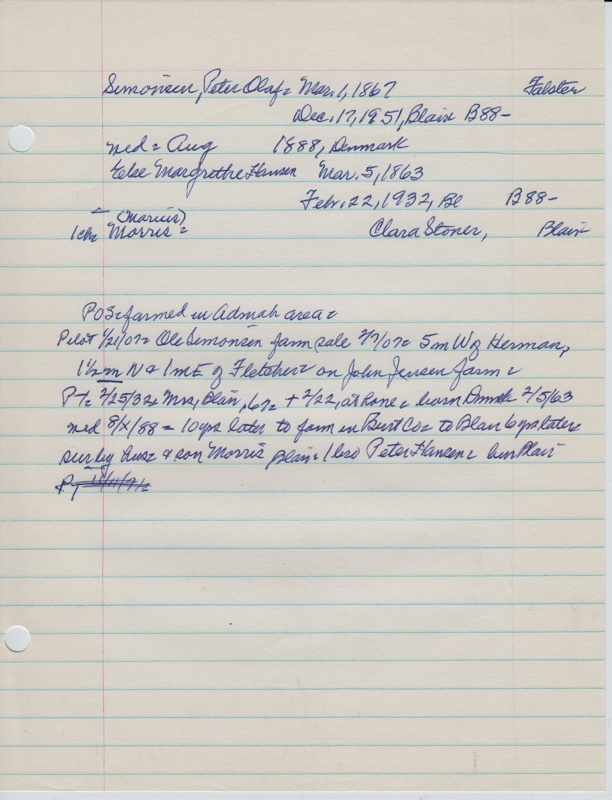 Simonsen, Peter Olaf = Mar. 1, 1867 Falster
Dec. 17, 1951, Blair B88-
med = Aug 1888, Denmark
Else Margrethe Hansen Mar. 5, 1863
Febr. 22, 1932, Bl B88-
(Marius)
1 ch = Morris = Clara Stoner, Blair
POS = farmed in Admah area =
Pilot 1/21/07 = Ole Simonsen farm sale 2/7/07 = 5 m W of Herman,
1 1/2 m N & 1 m E of Fletcher = on John Jensen farm =
PT = 2/25/32 = Mrs, Blair, + 2/22, at home = born Dnmk 2/5/63
med 8/X/88 = 10 yrs later to farm in Burt Co = to Blair 6 yrs later
sur by hus & son Morris Blair = 1 bro Peter Hansen = bur Blair